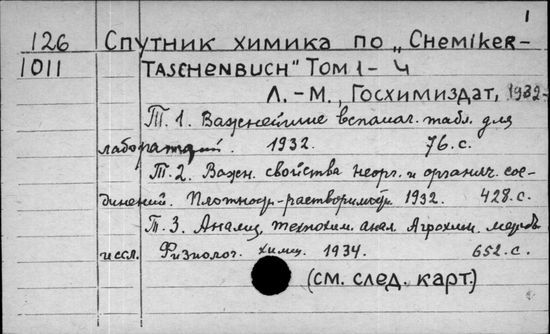 1
126 Спутник химика по „Chemiker-
1011 Taschenbuch" Том 1- 4
Л.-М., Госхимиздат, 1932-
Т. 1. Важнейшие вспомаг. табл. для
лабораторий. 1932. 76. с.
Т. 2. Важн. свойства неорг. и органич. сое-
динений. Плотность-растворимость. 1932. 428. с.
Т. 3. Анализ, технохим. анал. Агрохим. методы
иссл. Физиолог. химии. 1934. 652. с.
(см. след. карт.)